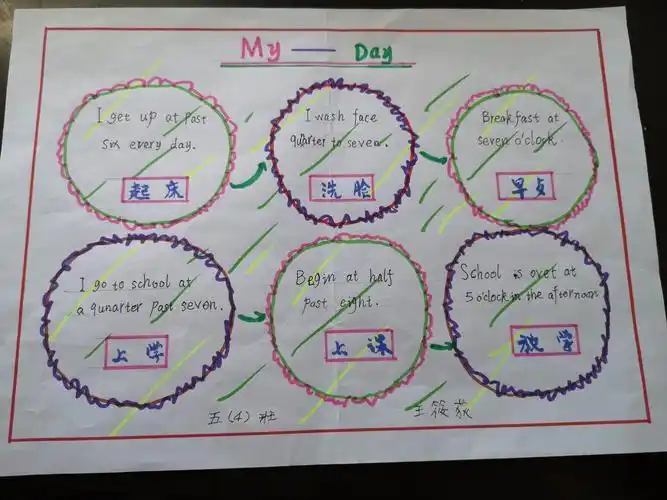 My — Day
I get up at past
six every day.
起床
I wash face
quarter to seven.
洗脸
Breakfast at
seven o'clock.
早点
I go to school at
a qunarter past seven.
上学
Begin at half
past eight.
上课
School is over at
5 o'clock in the afternoon
放学
五(4)班
王筱荻